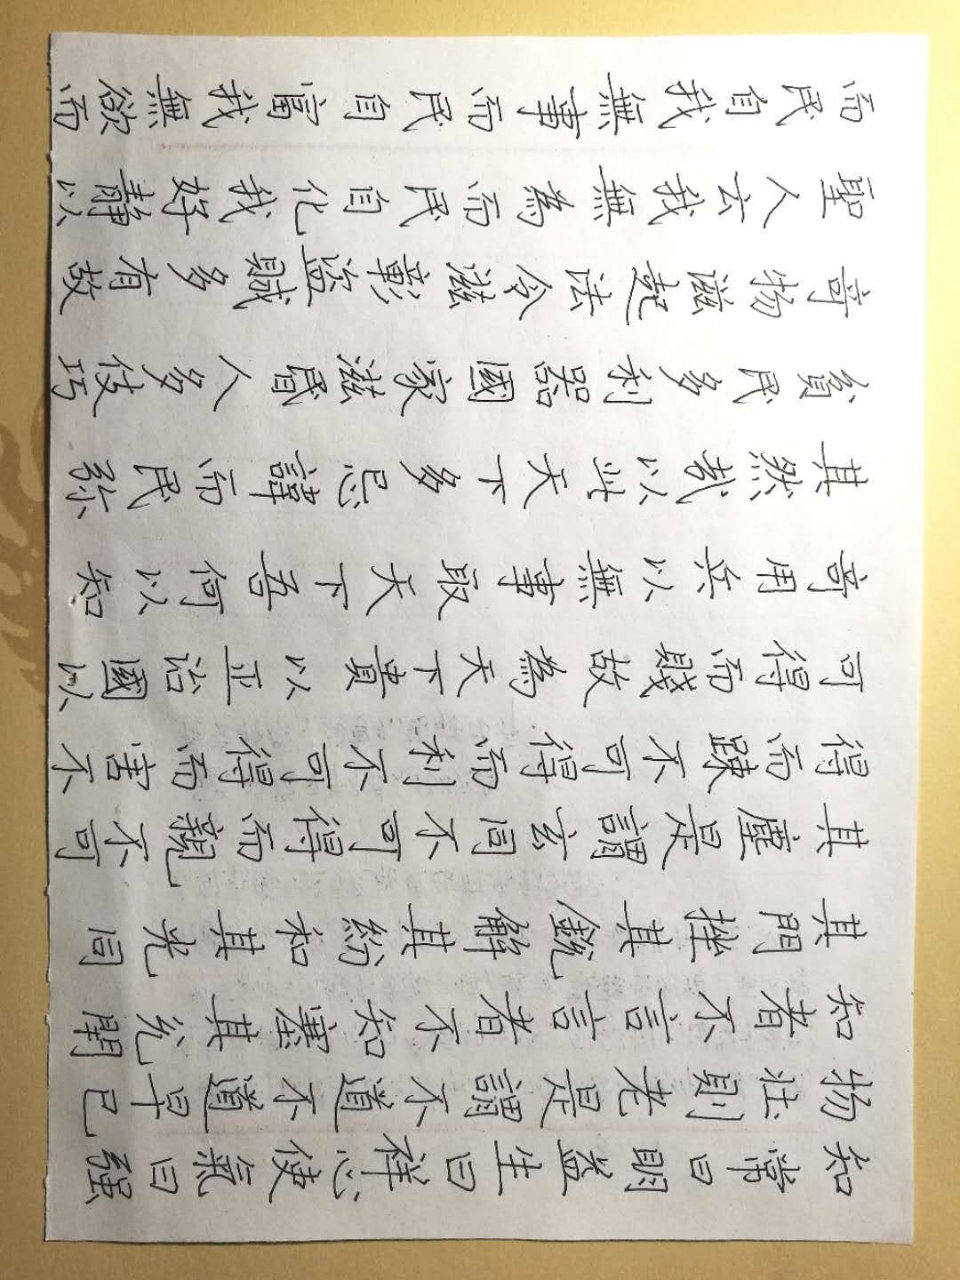 知常曰明益生曰祥心使氣曰强
物壯則老是謂不道不道早已
知者不言言者不知塞其兑閉
其門挫其銳解其紛和其光同
其塵是謂玄同不可得而親不可
得而踈不可得而利不可得而害不
可得而賤故為天下貴以正治國以
竒用兵以無事取天下吾何以知
其然哉以此天下多忌諱而民弥
貧民多利器國家滋昬人多伎巧
竒物滋起法令滋彰盜賊多有故
聖人云我無為而民自化我好靜以
而民自我無事而民自富我無欲而